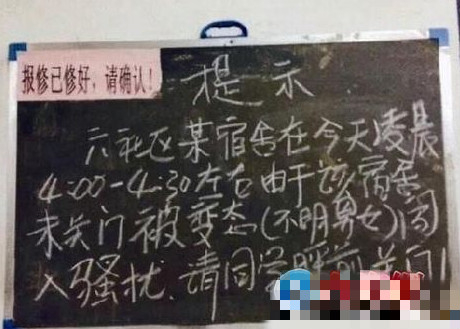 报修已修好，请确认！
提示
六社区某宿舍在今天凌晨
4:00-4:30左右由于该宿舍
未关门被变态(不明男女)闯
入骚扰.请同学睡前关门!